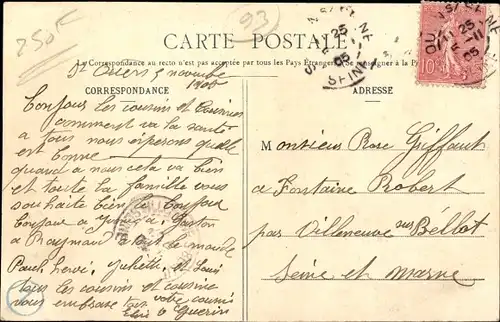 250F
93
CARTE POSTALE
La Correspondance au recto n'est pas acceptée par tous les Pays Étrangers (Se renseigner à la P
St Ouen 5 novembre
1905
CORRESPONDANCE
ADRESSE
Bonjour les cousins et Cousines
comment va la santé
a tous nous espérons quelle
est bonne
quand a nous cela va bien
et toute la famille vous
souhaite bien le bonjour
Bonjour a Gaston
a Raymond
Paul hervé, Juliette et Louis
tous les cousins et cousine
vous embrasse tous votre cousin
Guerin
Monsieur Griffaut
a Fontaine Robert
par Villeneuve sur Bellot
Seine et Marne
25
05
SEINE
10